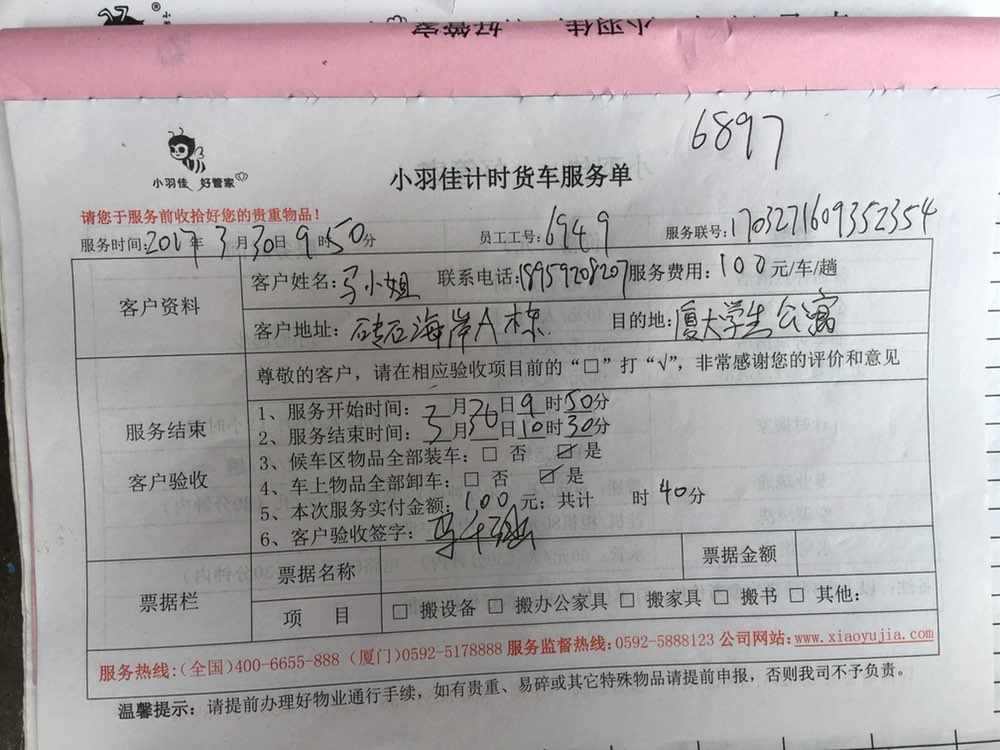 小羽佳 好管家
6897
小羽佳 好管家
小羽佳计时货车服务单
请您于服务前收拾好您的贵重物品！
服务时间:2017年3月30日9时50分 员工工号:6949 服务联号:1703271609352354
客户资料
客户姓名:马小姐 联系电话:18959208207 服务费用:100元/车/趟
客户地址: 砖石海岸A栋 目的地:厦大学生公寓
服务结束
客户验收
尊敬的客户，请在相应验收项目前的“□”打“√”，非常感谢您的评价和意见
1、服务开始时间：3月30日9时50分
2、服务结束时间：3月30日10时30分
3、候车区物品全部装车：□ 否 ☑ 是
4、车上物品全部卸车：□ 否 ☑ 是
5、本次服务实付金额：100元；共计 时40分
6、客户验收签字：马
票据栏
票据名称 票据金额
项 目 □ 搬设备 □ 搬办公家具 □ 搬家具 □ 搬书 □ 其他:
服务热线:(全国)400-6655-888 (厦门)0592-5178888 服务监督热线:0592-5888123 公司网站:www.xiaoyujia.com
温馨提示：请提前办理好物业通行手续，如有贵重、易碎或其它特殊物品请提前申报，否则我司不予负责。